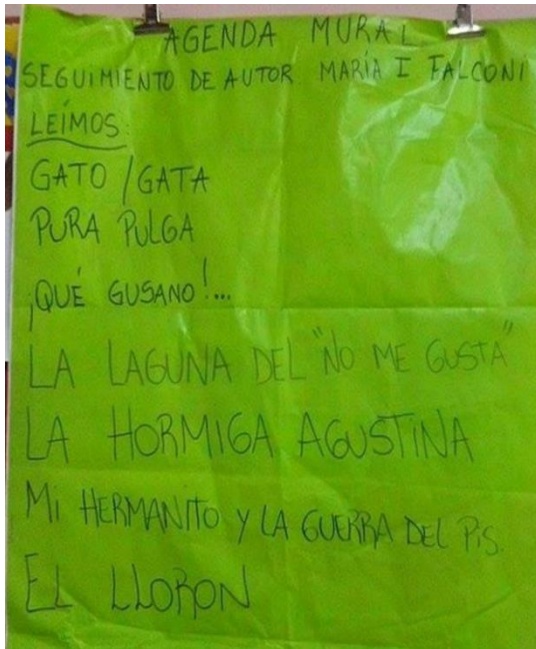 AGENDA MURAL
SEGUIMIENTO DE AUTOR MARÍA I FALCONI
LEÍMOS:
GATO / GATA
PURA PULGA
¡QUÉ GUSANO!...
LA LAGUNA DEL "NO ME GUSTA"
LA HORMIGA AGUSTINA
MI HERMANITO Y LA GUERRA DEL PIS.
EL LLORON